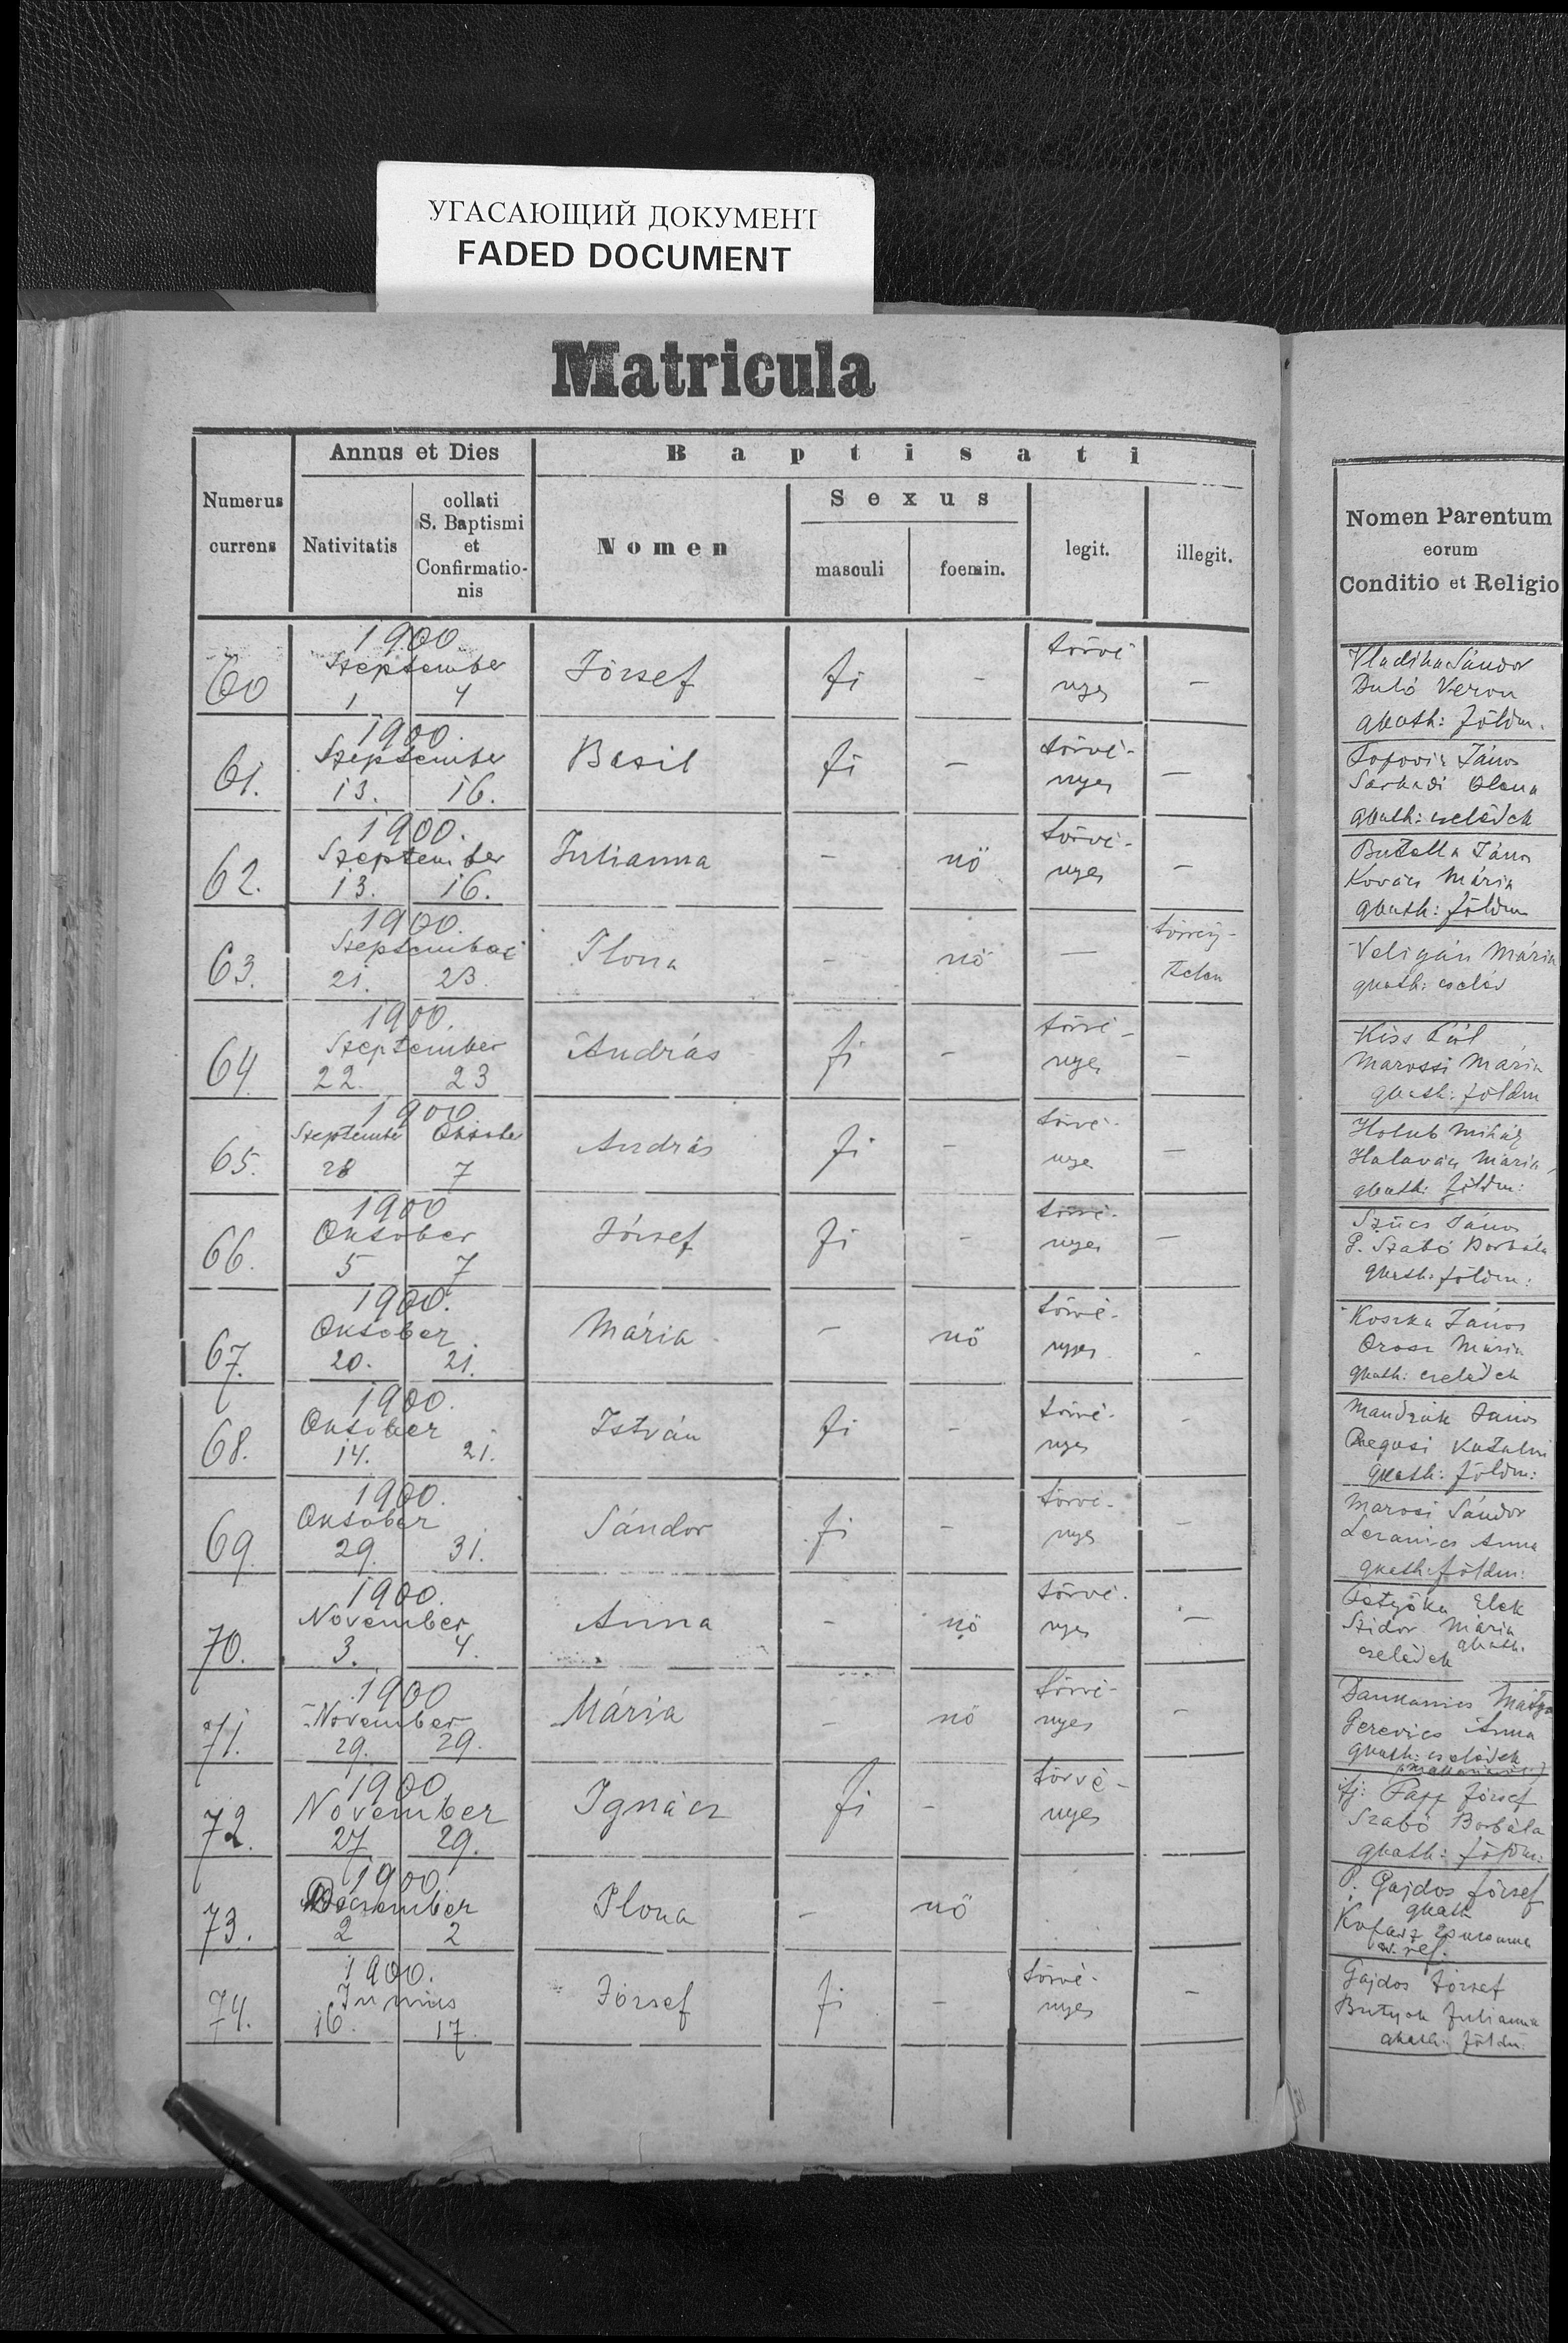 УГАСАЮЩИЙ ДОКУМЕНТ
FADED DOCUMENT
Matricula
Numerus currens
Annus et Dies
Nativitatis
collati S. Baptismi et Confirmationis
Baptisati
Nomen
Sexus
masculi
foemin.
legit.
illegit.
Nomen Parentum
eorum
Conditio et Religio
60 1900 Szeptember 1 4 József fi - törvényes -
Vladika Sándor
Duló Veron
gkath: földm.
61. 1900. Szeptember 13. 16. Basil fi - törvé-nyes -
Popovis János
Sarkadi Olena
gkath: cselédek
62. 1900. Szeptember 13. 16. Julianna - nö törvé-nyes -
Butella János
Kovács Mária
gkath: földm
63. 1900. 21. 23. Ilona - nö -
Veligán Mária
gkath: cseléd
64. 1900. Szeptember 22. 23 András fi - törvé-nyes -
Kiss Pál
Marossi Mária
gkath: földm
65. 1900. Szeptember Október 28 7 András fi - törvé-nye -
Holub Mihály
Halaván Mária
gkath: földm:
66. 1900 Október 5 7 József fi - törvé-nyes -
Szűcs János
P. Szabó Borbála
gkath: földm:
67. 1900. Október 20. 21. Mária - nö törvé-nyes -
Koszka János
Orosz Mária
gkath: cselédek
68. 1900. Október 14. 21. István fi - törvé-nyes -
Mandzák János
Katalin
gkath: földm:
69. 1900. Október 29. 31. Sándor fi - törvé-nyes -
Marosi Sándor
Anna
gkath: földm:
70. 1900. November 3. 4. Anna - nö törvé-nyes -
Elek
Szidor Mária
gkath.
cselédek
71. 1900 November 29. 29. Mária - nö törvé-nyes -
Dankanics
Gerevics Anna
gkath: cselédek
72. 1900 November 27 29. Ignácz fi - törvé-nyes
ifj: Papp József
Szabó Borbála
gkath: földm:
73. 1900 Deczember 2 2 Ilona - nö
P. Gajdos József
gkath
Zsuzsanna
ev. ref.
74. 1900. Junius 16. 17. József fi - törvé-nyes -
Gajdos József
Butyok Julianna
gkath: földm